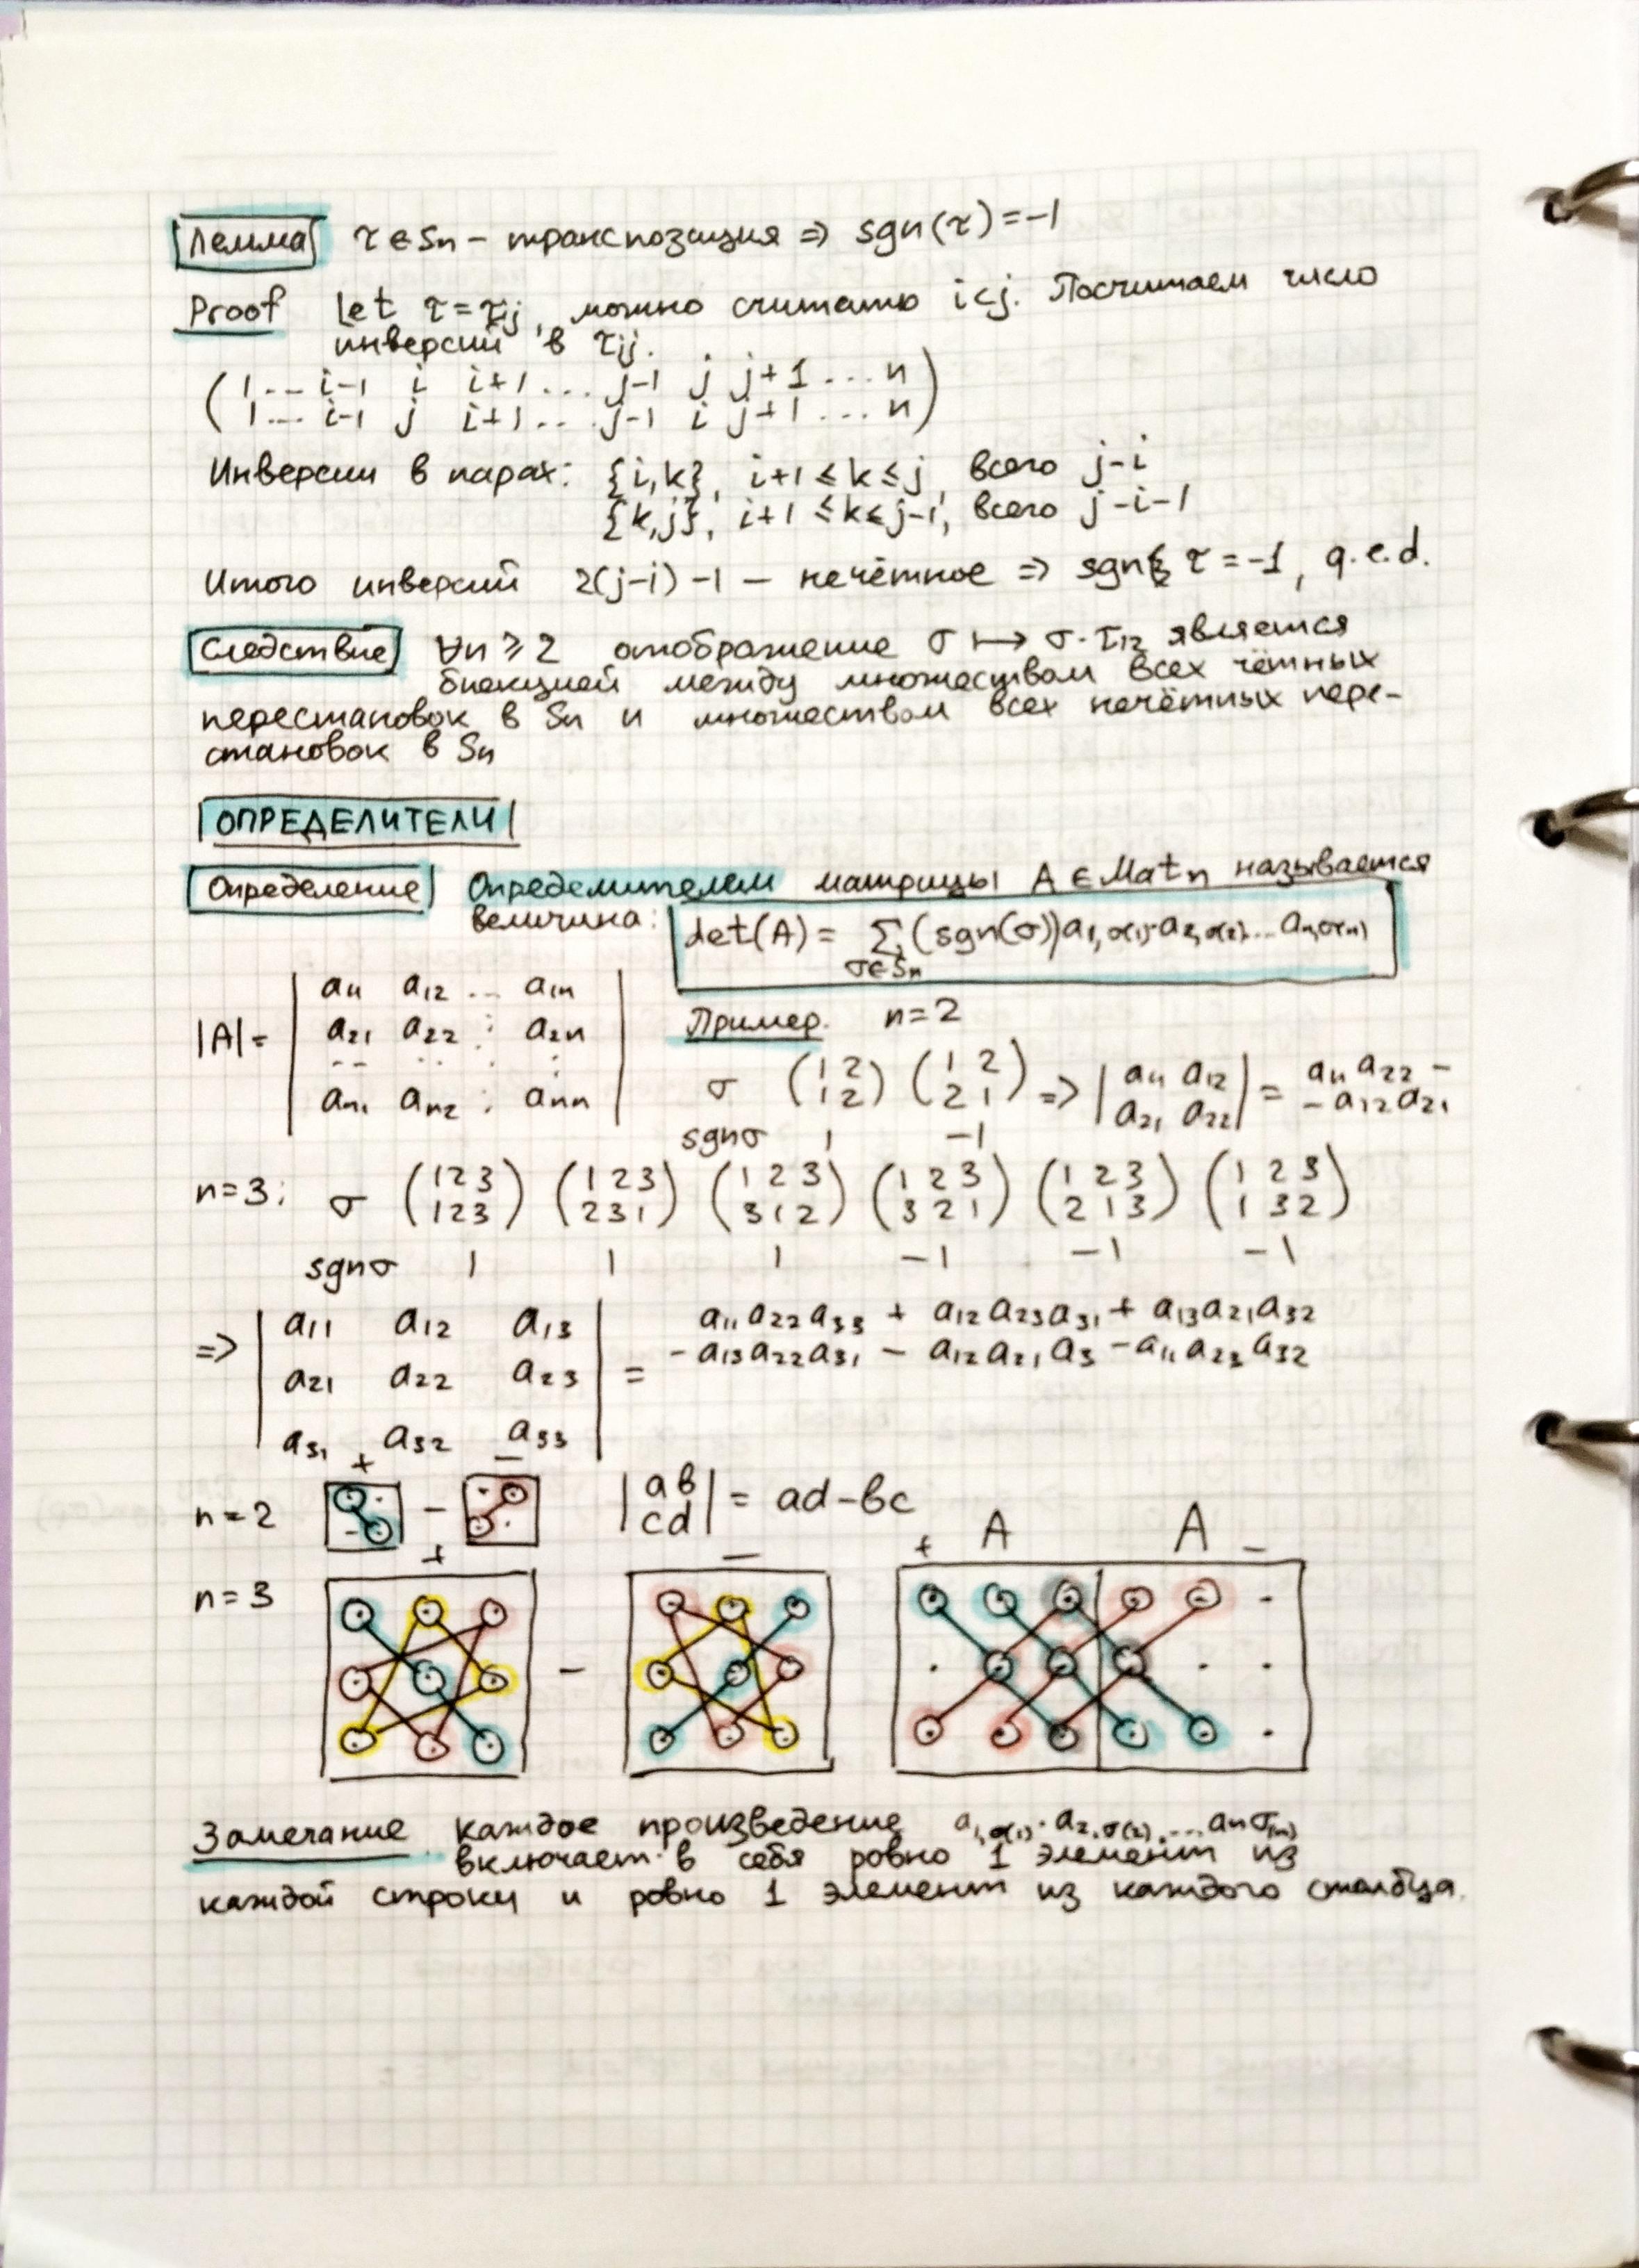 Лемма τ∈Sn – транспозиция => sgn(τ)=-1
Proof Let τ=τij, можно считать i<j. Посчитаем число
инверсий в τij.
(1... i-1 i i+1... j-1 j j+1...n)
(1... i-1 j i+1... j-1 i j+1...n)
Инверсии в парах: {i,k}, i+1≤k≤j, всего j-i
{k,j}, i+1≤k≤j-1, всего j-i-1
Итого инверсий 2(j-i)-1 – нечётное => sgn τ=-1, q.e.d.
Следствие ∀n≥2 отображение σ↦σ·τ12 является
биекцией между множеством всех чётных
перестановок в Sn и множеством всех нечётных пере-
становок в Sn
ОПРЕДЕЛИТЕЛИ
Определение Определителем матрицы A∈Matn называется
величина: det(A) = Σ (sgn(σ))a1,σ(1)·a2,σ(2)...an,σ(n)
σ∈Sn
|A|= | a11 a12 ... a1n |
| a21 a22 ⋮ a2n |
| .. .. ⋮ ⋮ |
| an1 an2 ⋮ ann |
Пример. n=2
σ (1 2) (1 2) => |a11 a12| = a11a22 -
(1 2) (2 1) |a21 a22| - a12a21
sgnσ 1 -1
n=3: σ (1 2 3) (1 2 3) (1 2 3) (1 2 3) (1 2 3) (1 2 3)
(1 2 3) (2 3 1) (3 1 2) (3 2 1) (2 1 3) (1 3 2)
sgnσ 1 1 1 -1 -1 -1
=> | a11 a12 a13 | = a11a22a33 + a12a23a31 + a13a21a32
| a21 a22 a23 | - a13a22a31 - a12a21a3 - a11a23a32
| a31 a32 a33 |
+ –
n=2 – |a b| = ad-bc
|c d|
+ – + A A –
n=3 –
Замечание каждое произведение a1,σ(1)·a2,σ(2)·...anσ(n)
включает в себя ровно 1 элемент из
каждой строки и ровно 1 элемент из каждого столбца.